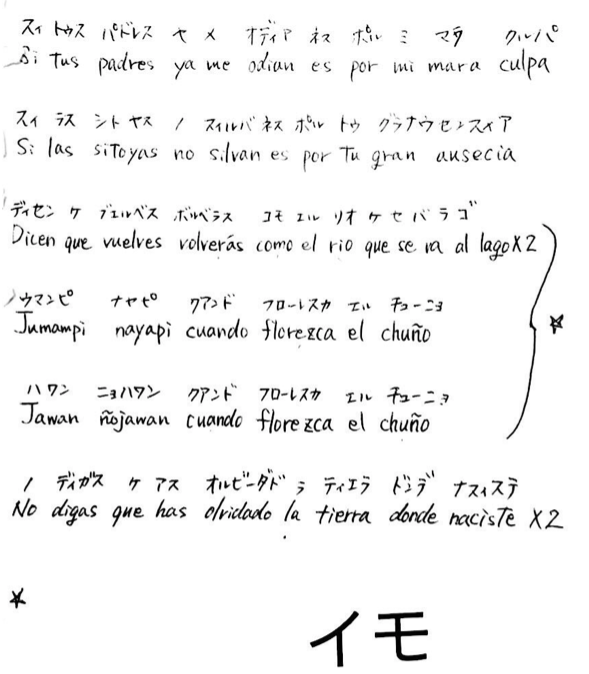 スィ トゥス パドレス ヤ メ オディア ネス ポル ミ マラ クルパ
Si tus padres ya me odian es por mi mara culpa
スィ ラス シトヤス ノ スィルバ ネス ポル トゥ グラナウセンスィア
Si las sitoyas no silvan es por tu gran ausecia
ディセン ケ ブエルベス ボルベラス コモ エル リオ ケ セ バ ラ ゴ
Dicen que vuelves volverás como el rio que se va al lago X2
ウマンピ ナヤピ クアンド フローレスカ エル チューニョ
Jumampi nayapi cuando florezca el chuño
ハワン ニョハワン クアンド フローレスカ エル チューニョ
Jawan ñojawan cuando florezca el chuño
ノ ディガス ケ アス オルビーダド ラ ティエラ ドンデ ナスィステ
No digas que has olvidado la tierra donde naciste X2
イモ